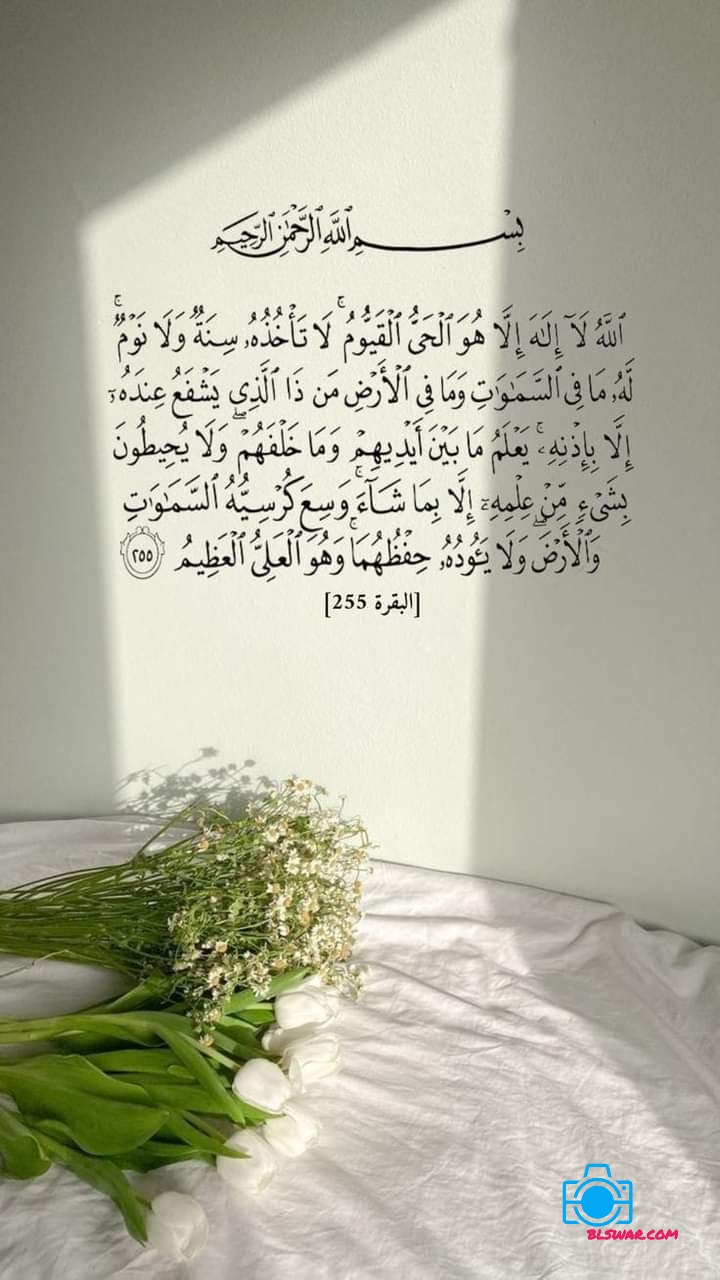 بِسْمِ ٱللَّهِ ٱلرَّحْمَٰنِ ٱلرَّحِيمِ
ٱللَّهُ لَآ إِلَٰهَ إِلَّا هُوَ ٱلْحَىُّ ٱلْقَيُّومُ ۚ لَا تَأْخُذُهُۥ سِنَةٌ وَلَا نَوْمٌ ۚ
لَّهُۥ مَا فِى ٱلسَّمَٰوَٰتِ وَمَا فِى ٱلْأَرْضِ ۗ مَن ذَا ٱلَّذِى يَشْفَعُ عِندَهُۥٓ
إِلَّا بِإِذْنِهِۦ ۚ يَعْلَمُ مَا بَيْنَ أَيْدِيهِمْ وَمَا خَلْفَهُمْ ۖ وَلَا يُحِيطُونَ
بِشَىْءٍ مِّنْ عِلْمِهِۦٓ إِلَّا بِمَا شَآءَ ۚ وَسِعَ كُرْسِيُّهُ ٱلسَّمَٰوَٰتِ
وَٱلْأَرْضَ ۖ وَلَا يَـُٔودُهُۥ حِفْظُهُمَا ۚ وَهُوَ ٱلْعَلِىُّ ٱلْعَظِيمُ ٢٥٥
[البقرة 255]
BLSWAR.COM